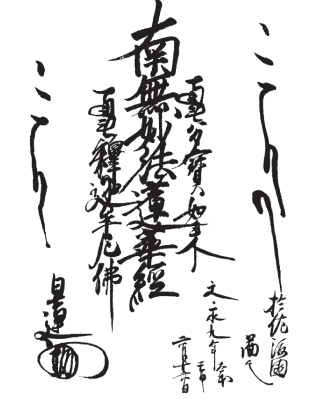 於佐渡國
圖之
文永九年太才
壬申
六月十六日
南無多寶如來
南無妙法蓮華經
南無釋迦牟尼佛
日蓮